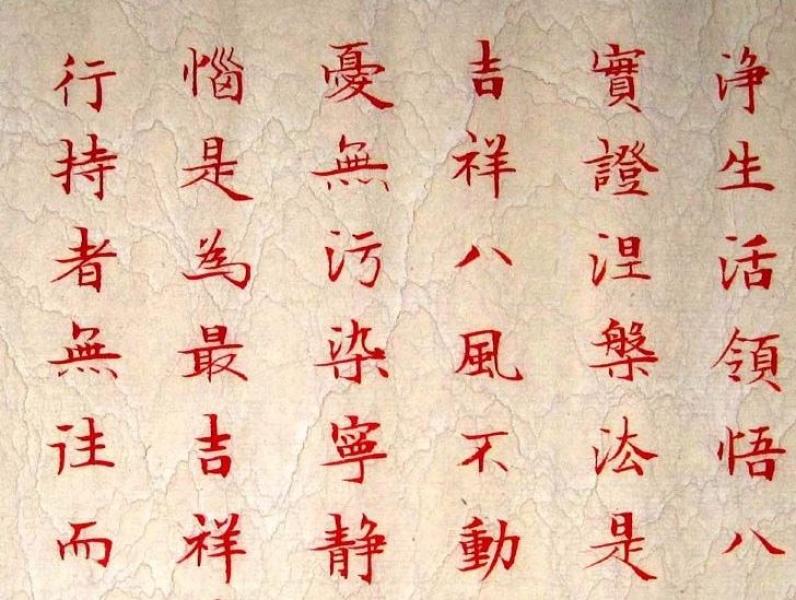 浄生活領悟八
實證涅槃法是
吉祥八風不動
憂無污染寧靜
惱是為最吉祥
行持者無往而